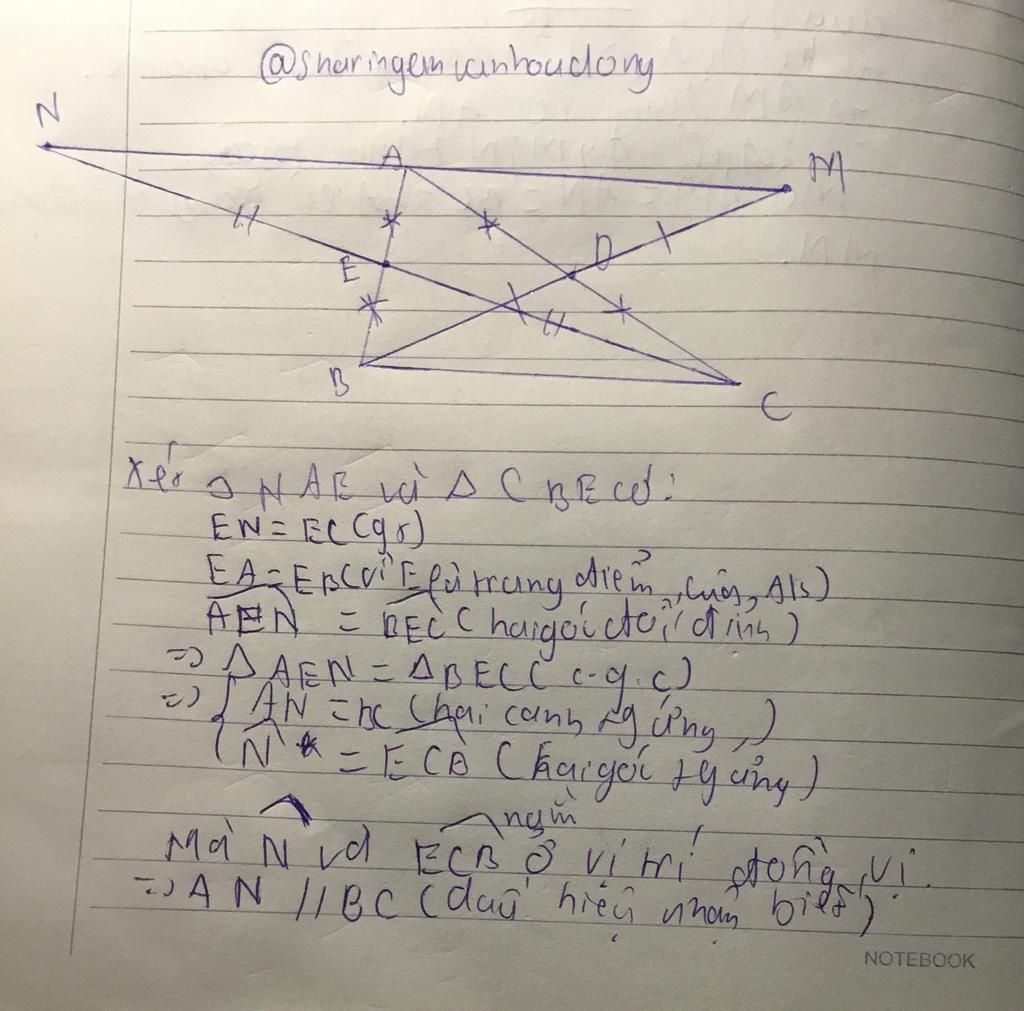 @sharingemvanhoudong
N
A
M
E
D
B
C
Xét Δ NAE và Δ CBE có:
EN = EC (gt)
EA = EB (vì E là trung điểm của AB)
AEN = BEC (hai góc đối đỉnh)
=> Δ AEN = Δ BEC (c-g.c)
=> { AN = BC (hai cạnh tg ứng)
N = ECB (hai góc tg ứng)
Mà N và ECB nằm ở vị trí đồng vị
=> AN // BC (dấu hiệu nhận biết)
NOTEBOOK